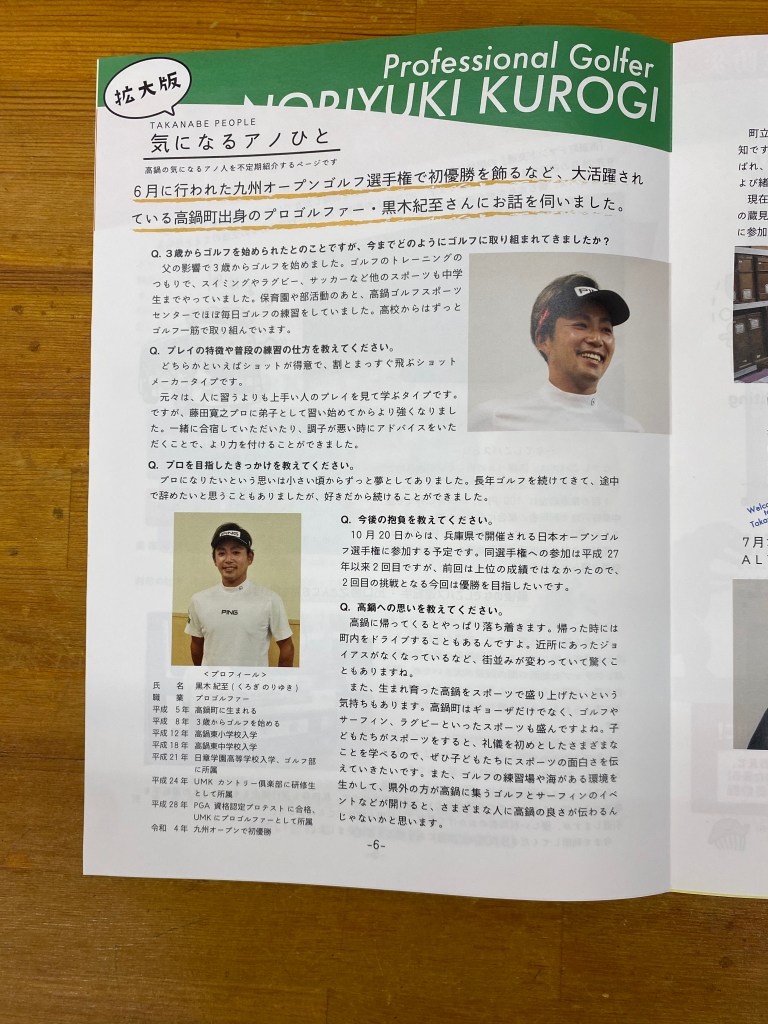 Professional Golfer
NORIYUKI KUROGI
拡大版
TAKANABE PEOPLE
気になるアノひと
高鍋の気になるアノ人を不定期紹介するページです
6月に行われた九州オープンゴルフ選手権で初優勝を飾るなど、大活躍され
ている高鍋町出身のプロゴルファー・黒木紀至さんにお話を伺いました。
Q. 3歳からゴルフを始められたとのことですが、今までどのようにゴルフに取り組まれてきましたか?
父の影響で3歳からゴルフを始めました。ゴルフのトレーニングの
つもりで、スイミングやラグビー、サッカーなど他のスポーツも中学
生までやっていました。保育園や部活動のあと、高鍋ゴルフスポーツ
センターでほぼ毎日ゴルフの練習をしていました。高校からはずっと
ゴルフ一筋で取り組んでいます。
Q. プレイの特徴や普段の練習の仕方を教えてください。
どちらかといえばショットが得意で、割とまっすぐ飛ぶショット
メーカータイプです。
元々は、人に習うよりも上手い人のプレイを見て学ぶタイプです。
ですが、藤田寛之プロに弟子として習い始めてからより強くなりまし
た。一緒に合宿していただいたり、調子が悪い時にアドバイスをいた
だくことで、より力を付けることができました。
PING
Q. プロを目指したきっかけを教えてください。
プロになりたいという思いは小さい頃からずっと夢としてありました。長年ゴルフを続けてきて、途中
で辞めたいと思うこともありましたが、好きだから続けることができました。
PING
PING
<プロフィール>
氏 名 黒木 紀至(くろぎ のりゆき)
職 業 プロゴルファー
平成 5年 高鍋町に生まれる
平成 8年 3歳からゴルフを始める
平成12年 高鍋東小学校入学
平成18年 高鍋東中学校入学
平成21年 日章学園高等学校入学、ゴルフ部
に所属
平成24年 UMKカントリー倶楽部に研修生
として所属
平成28年 PGA資格認定プロテストに合格、
UMKにプロゴルファーとして所属
令和 4年 九州オープンで初優勝
Q. 今後の抱負を教えてください。
10月20日からは、兵庫県で開催される日本オープンゴル
フ選手権に参加する予定です。同選手権への参加は平成27
年以来2回目ですが、前回は上位の成績ではなかったので、
2回目の挑戦となる今回は優勝を目指したいです。
Q. 高鍋への思いを教えてください。
高鍋に帰ってくるとやっぱり落ち着きます。帰った時には
町内をドライブすることもあるんですよ。近所にあったジョ
イアスがなくなっているなど、街並みが変わっていて驚くこ
ともありますね。
また、生まれ育った高鍋をスポーツで盛り上げたいという
気持ちもあります。高鍋町はギョーザだけでなく、ゴルフや
サーフィン、ラグビーといったスポーツも盛んですよね。子
どもたちがスポーツをすると、礼儀を初めとしたさまざまな
ことを学べるので、ぜひ子どもたちにスポーツの面白さを伝
えていきたいです。また、ゴルフの練習場や海がある環境を
生かして、県外の方が高鍋に集うゴルフとサーフィンのイベ
ントなどが開けると、さまざまな人に高鍋の良さが伝わるん
じゃないかと思います。
-6-
町立
知です
ばれ、
よび緒
現在
の蔵見
に参加
Welco
to
Taka
7月
AL